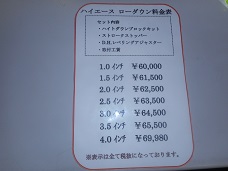 ハイエース ローダウン料金表
セット内容
・ハイトダウンブロックキット
・ストロークストッパー
・D.H.レベリングアジャスター
・取付工賃
1.0 インチ ￥60,000
1.5 インチ ￥61,500
2.0 インチ ￥62,500
2.5 インチ ￥63,500
3.0 インチ ￥64,500
3.5 インチ ￥65,500
4.0 インチ ￥69,980
※表示は全て税抜になっております。